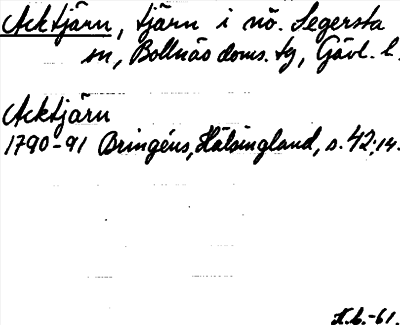 Acktjärn, tjärn i nö. Segersta
sn, Bollnäs doms. tg, Gävl. l.
Acktjärn
1790-91 Bringéus, Hälsingland, s. 42; 14.
K.L.-61.